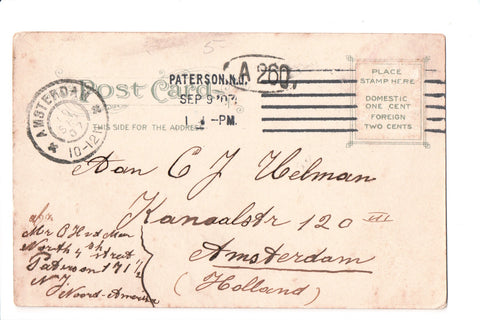 5
A 260
Post Card
PATERSON, N.J.
SEP 9 '07
1 - PM
THIS SIDE FOR THE ADDRESS
AMSTERDAM
10-12
PLACE
STAMP HERE
DOMESTIC
ONE CENT
FOREIGN
TWO CENTS
Aan C J Helman
Kanaalstr 120 III
Amsterdam
(Holland)
Mr
North 4th street
Paterson 171 1/2
N J
Noord-Amerika